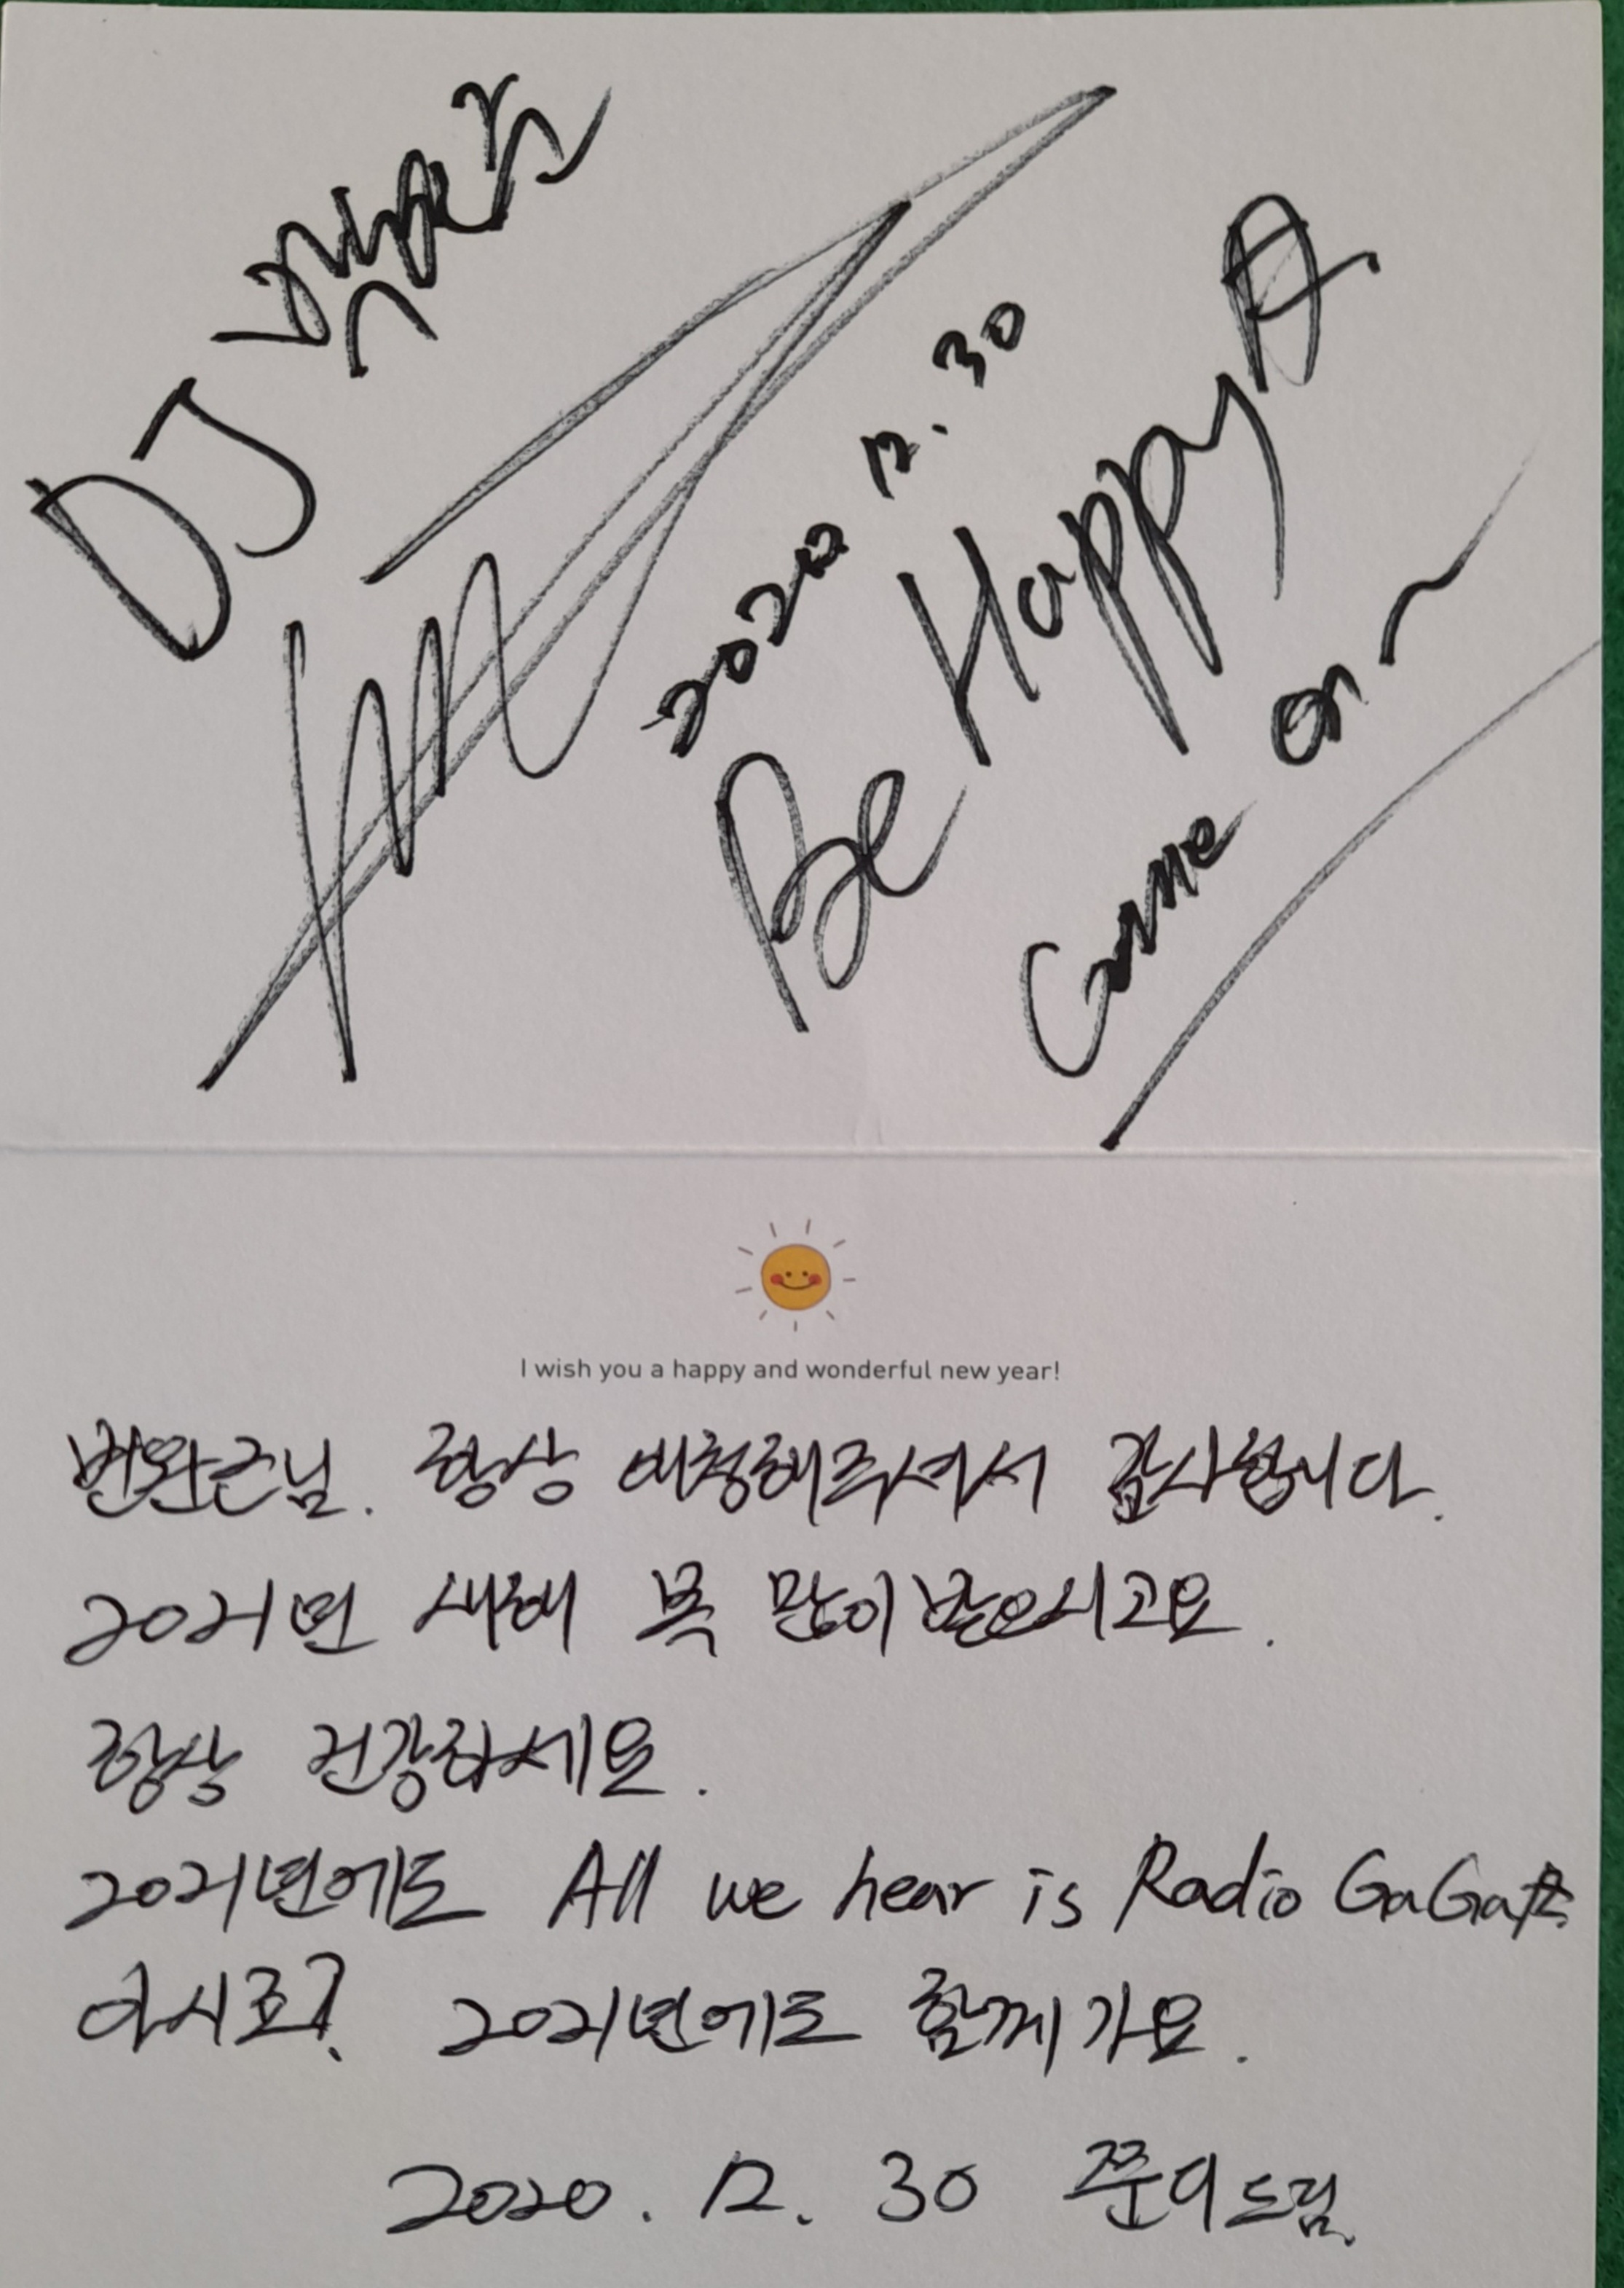 DJ
2020 12. 30
Be Happy☆
Come on~
I wish you a happy and wonderful new year!
변완근님. 항상 애청해주셔서 감사합니다.
2021년 새해 복 많이 받으시고요.
항상 건강하세요.
2021년에도 All we hear is Radio GaGa☆
아시죠? 2021년에도 함께 가요.
2020. 12. 30 쭌디 드림.